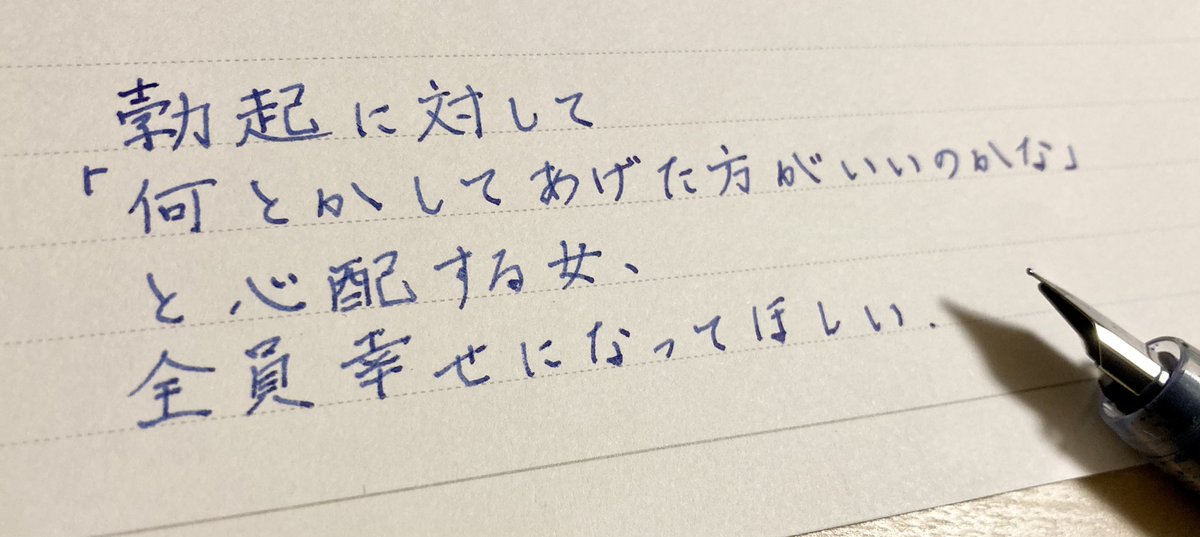 勃起に対して
「何とかしてあげた方がいいのかな」
と心配する女、
全員幸せになってほしい.